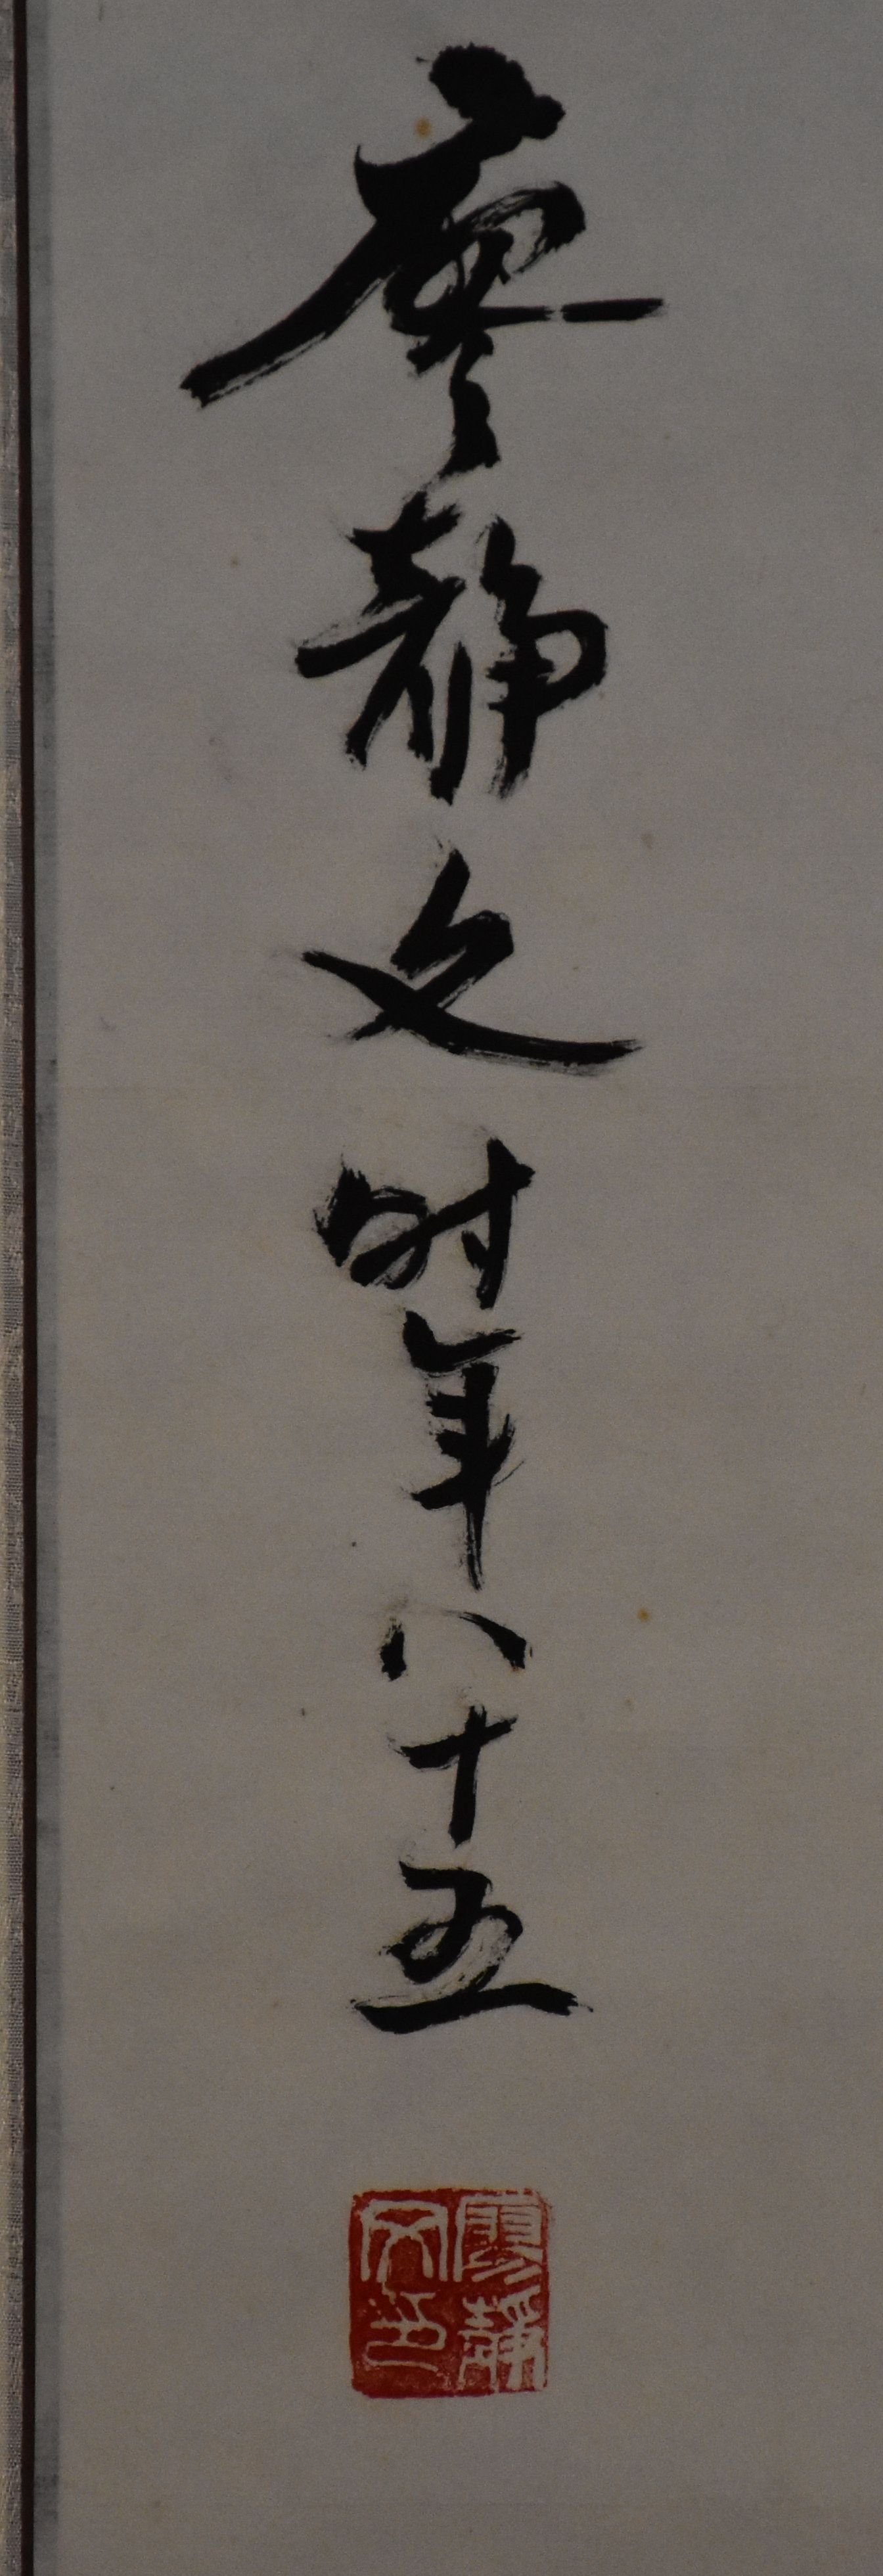 廖静文时年八十五
廖靜文印